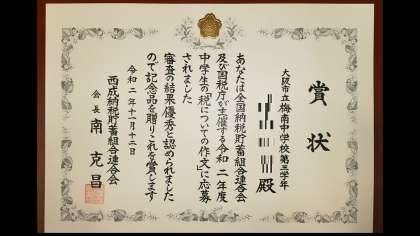 賞状
大阪市立梅南中学校第三学年
殿
あなたは全国納税貯蓄組合連合会
及び国税庁が主催する令和二年度
中学生の「税についての作文」に応募
されました
審査の結果優秀と認められました
ので記念品を贈りこれを賞します
令和二年十一月十二日
西成納税貯蓄組合連合会
会長 南 克昌